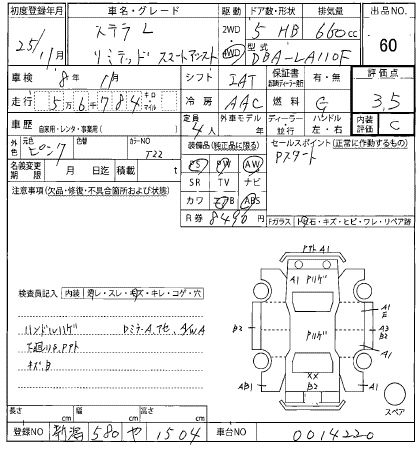 初度登録年月 車名・グレード 駆動 ドア数・形状 排気量 出品NO.
25/11月 ステラ L リミテッド スマートアシスト 2WD 4WD 5 HB 660cc 60
型式 DBA-LA110F
車検 8年 11月 シフト IAT 保証書 有・無 評価点
走行 56784 キロ マイル 冷房 AAC 燃料 G 3.5
車歴 自家用・レンタ・事業用( ) 定員 4人 外車モデル 年 ディーラー 並行 ハンドル 左・右 内装評価 C
外色 元色 ピンク 色替 カラーNO T22 装備品(純正品に限る) セールスポイント(正常に作動するもの)
PS PW AW Pスタート
名義変更期限 月 日迄 積載量 t SR TV ナビ
注意事項(欠品・修復・不具合箇所および状態) カワ エアB ABS
R券 8490円
Fガラス 飛石・キズ・ヒビ・ワレ・リペア跡
検査員記入 内装 汚レ・スレ・キズ・キレ・コゲ・穴
ハンドルハゲ DミラーA,アセ, A/WA
下廻りS,アアト
キズ・B
アアト A1
A1 Pハゲ
A1
E
B2 Pハゲ A3
B2
XX
AB1 B2 A1
A1
スペア
長さ cm 幅 cm 高さ cm
登録NO 新潟 580 や 1504 車台NO 0014220